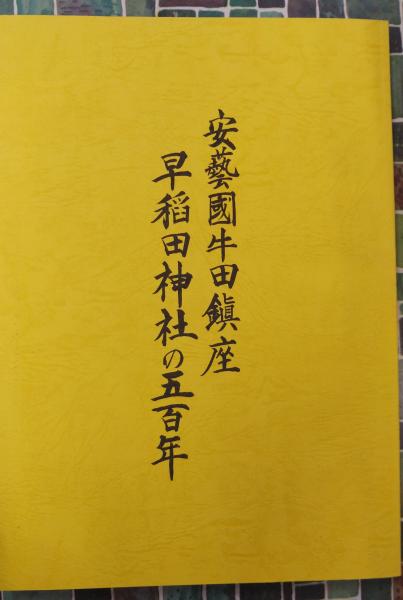 安藝國牛田鎭座
早稻田神社の五百年